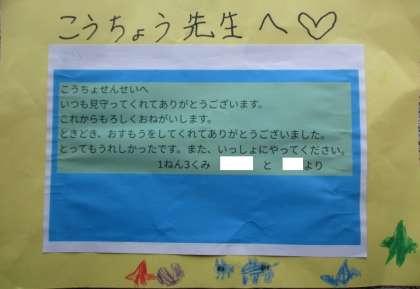 こうちょう先生へ♡
こうちょせんせいへ
いつも見守ってくれてありがとうございます。
これからもろしくおねがいします。
ときどき、おすもうをしてくれてありがとうございました。
とってもうれしかったです。また、いっしょにやってください。
1ねん3くみ と より